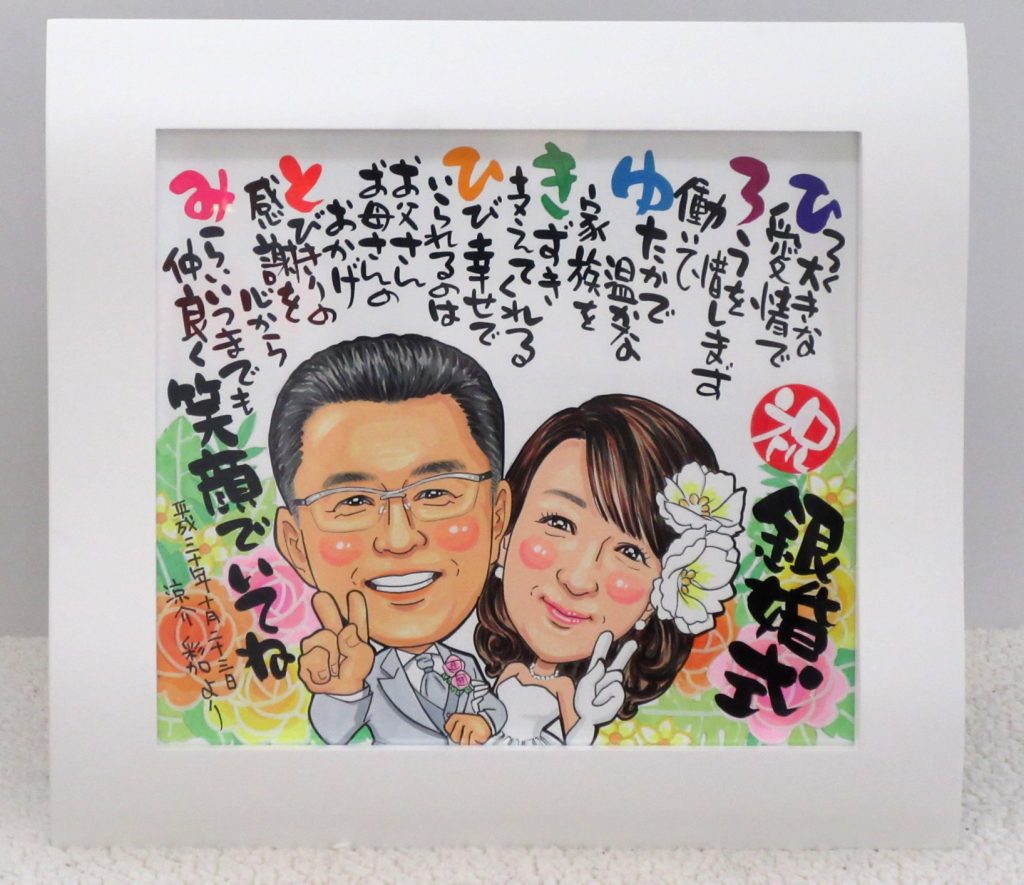 ひろく大きな
愛情で
ろうを
惜します
働いて
ゆたかで
温かな
家族を
きずき
支えてくれる
ひび幸せで
いられるのは
お父さん
お母さんの
おかげ
とびきりの
感謝を
心から
みらいいつまでも
仲良く笑顔でいてね
祝
銀婚式
平成三十年十月二十三日
涼介 より